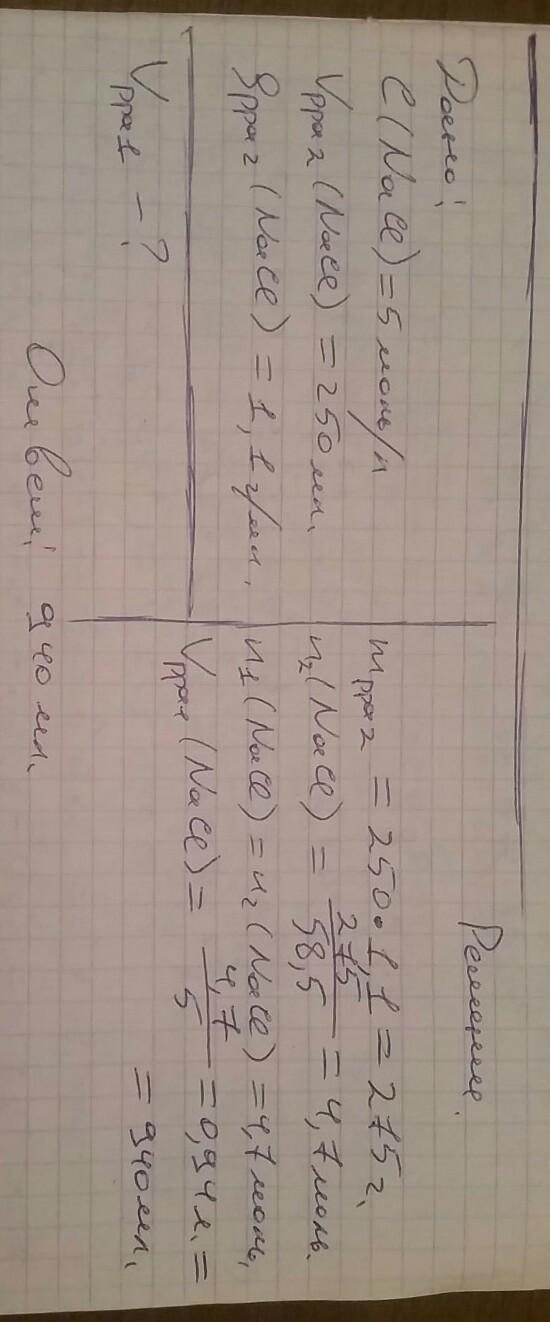 Дано:
C(NaCl) = 5 моль/л
Vрра2 (NaCl) = 250 мл.
ρрра2 (NaCl) = 1,1 г/мл.
Vрра1 – ?
Решение.
mрра2 = 250 · 1,1 = 275 г.
n2(NaCl) = 275/58,5 = 4,7 моль.
n1(NaCl) = n2(NaCl) = 4,7 моль.
Vрра1(NaCl) = 4,7/5 = 0,94 л. =
= 940 мл.
Ответ: 940 мл.